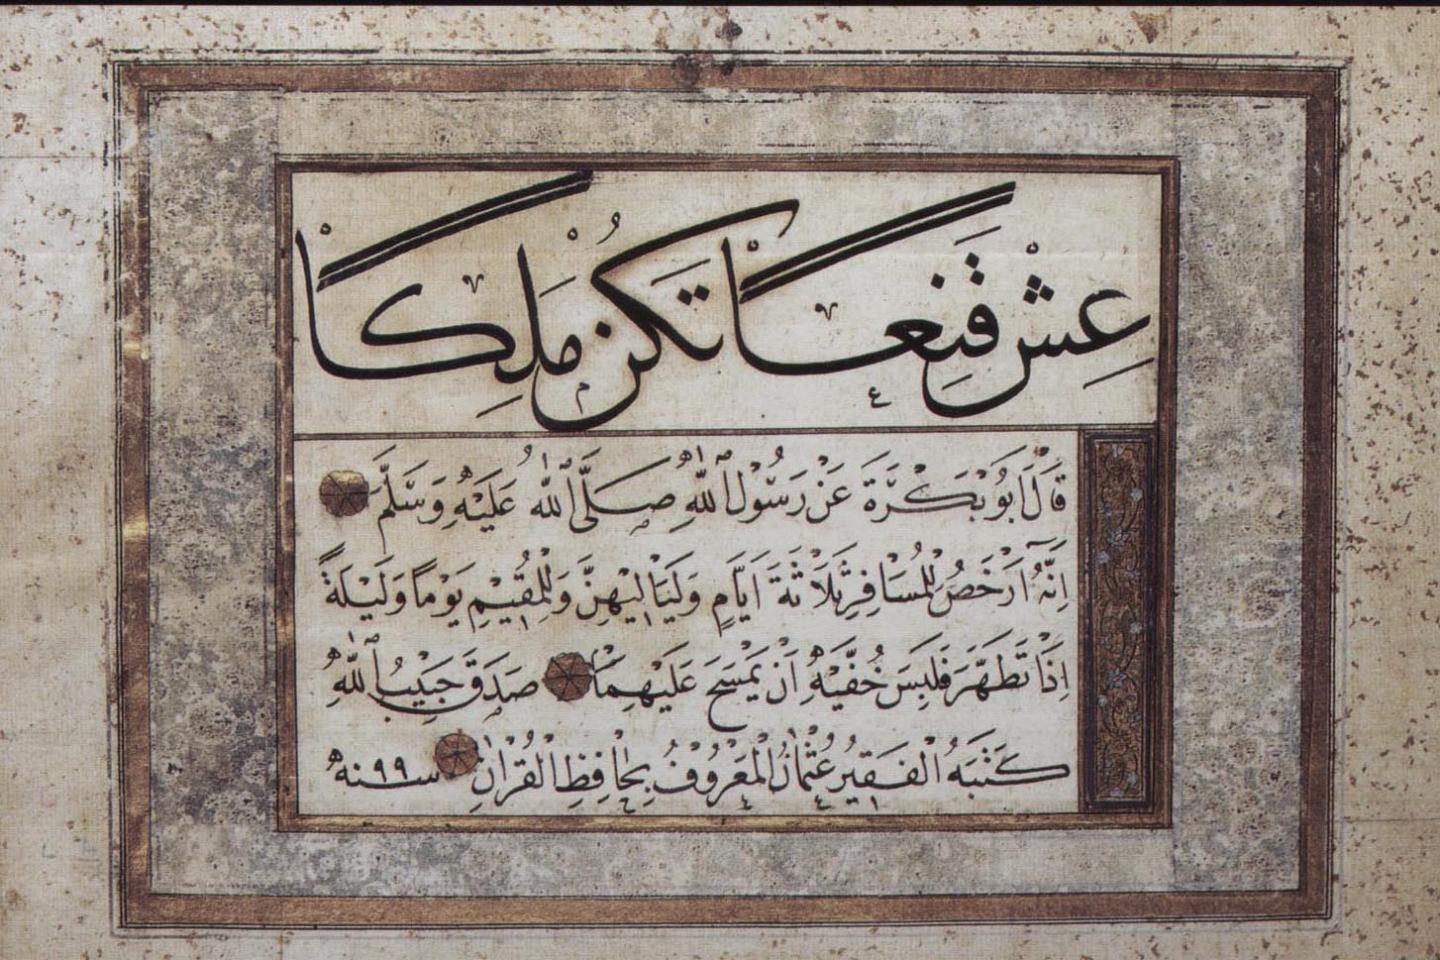 عِشْ قَنِعًا تَكُنْ مَلِكًا
قَالَ اَبُو بَكْرَةَ عَنْ رَسُوْلِ اللّٰهِ صَلَّى اللّٰهُ عَلَيْهِ وَسَلَّمَ
اِنَّهُ اَرْخَصَ لِلْمُسَافِرِ ثَلَاثَةَ اَيَّامٍ وَلَيَالِيْهِنَّ وَلِلْمُقِيْمِ يَوْمًا وَلَيْلَةً
اِذَا تَطَهَّرَ فَلَبِسَ خُفَّيْهِ اَنْ يَمْسَحَ عَلَيْهِمَا صَدَقَ حَبِيْبُ اللّٰهِ
كَتَبَهُ الْفَقِيرُ عُثْمَانُ الْمَعْرُوفُ بِحَافِظِ الْقُرْاٰنِ سنه ٩٩